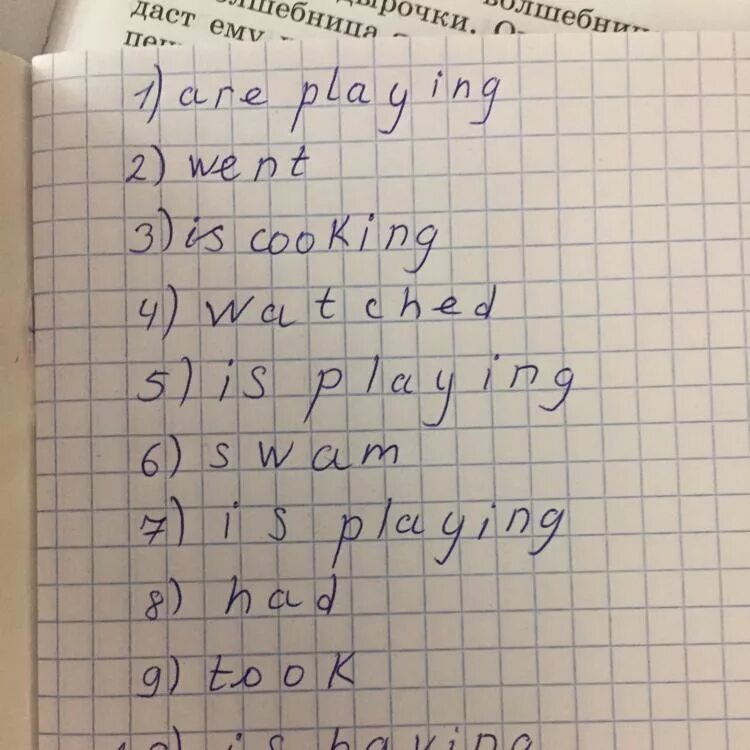 волшебниц
дырочки.
волшебница
даст ему
1) are playing
2) went
3) is cooking
4) watched
5) is playing
6) swam
7) is playing
8) had
9) took
10) is having